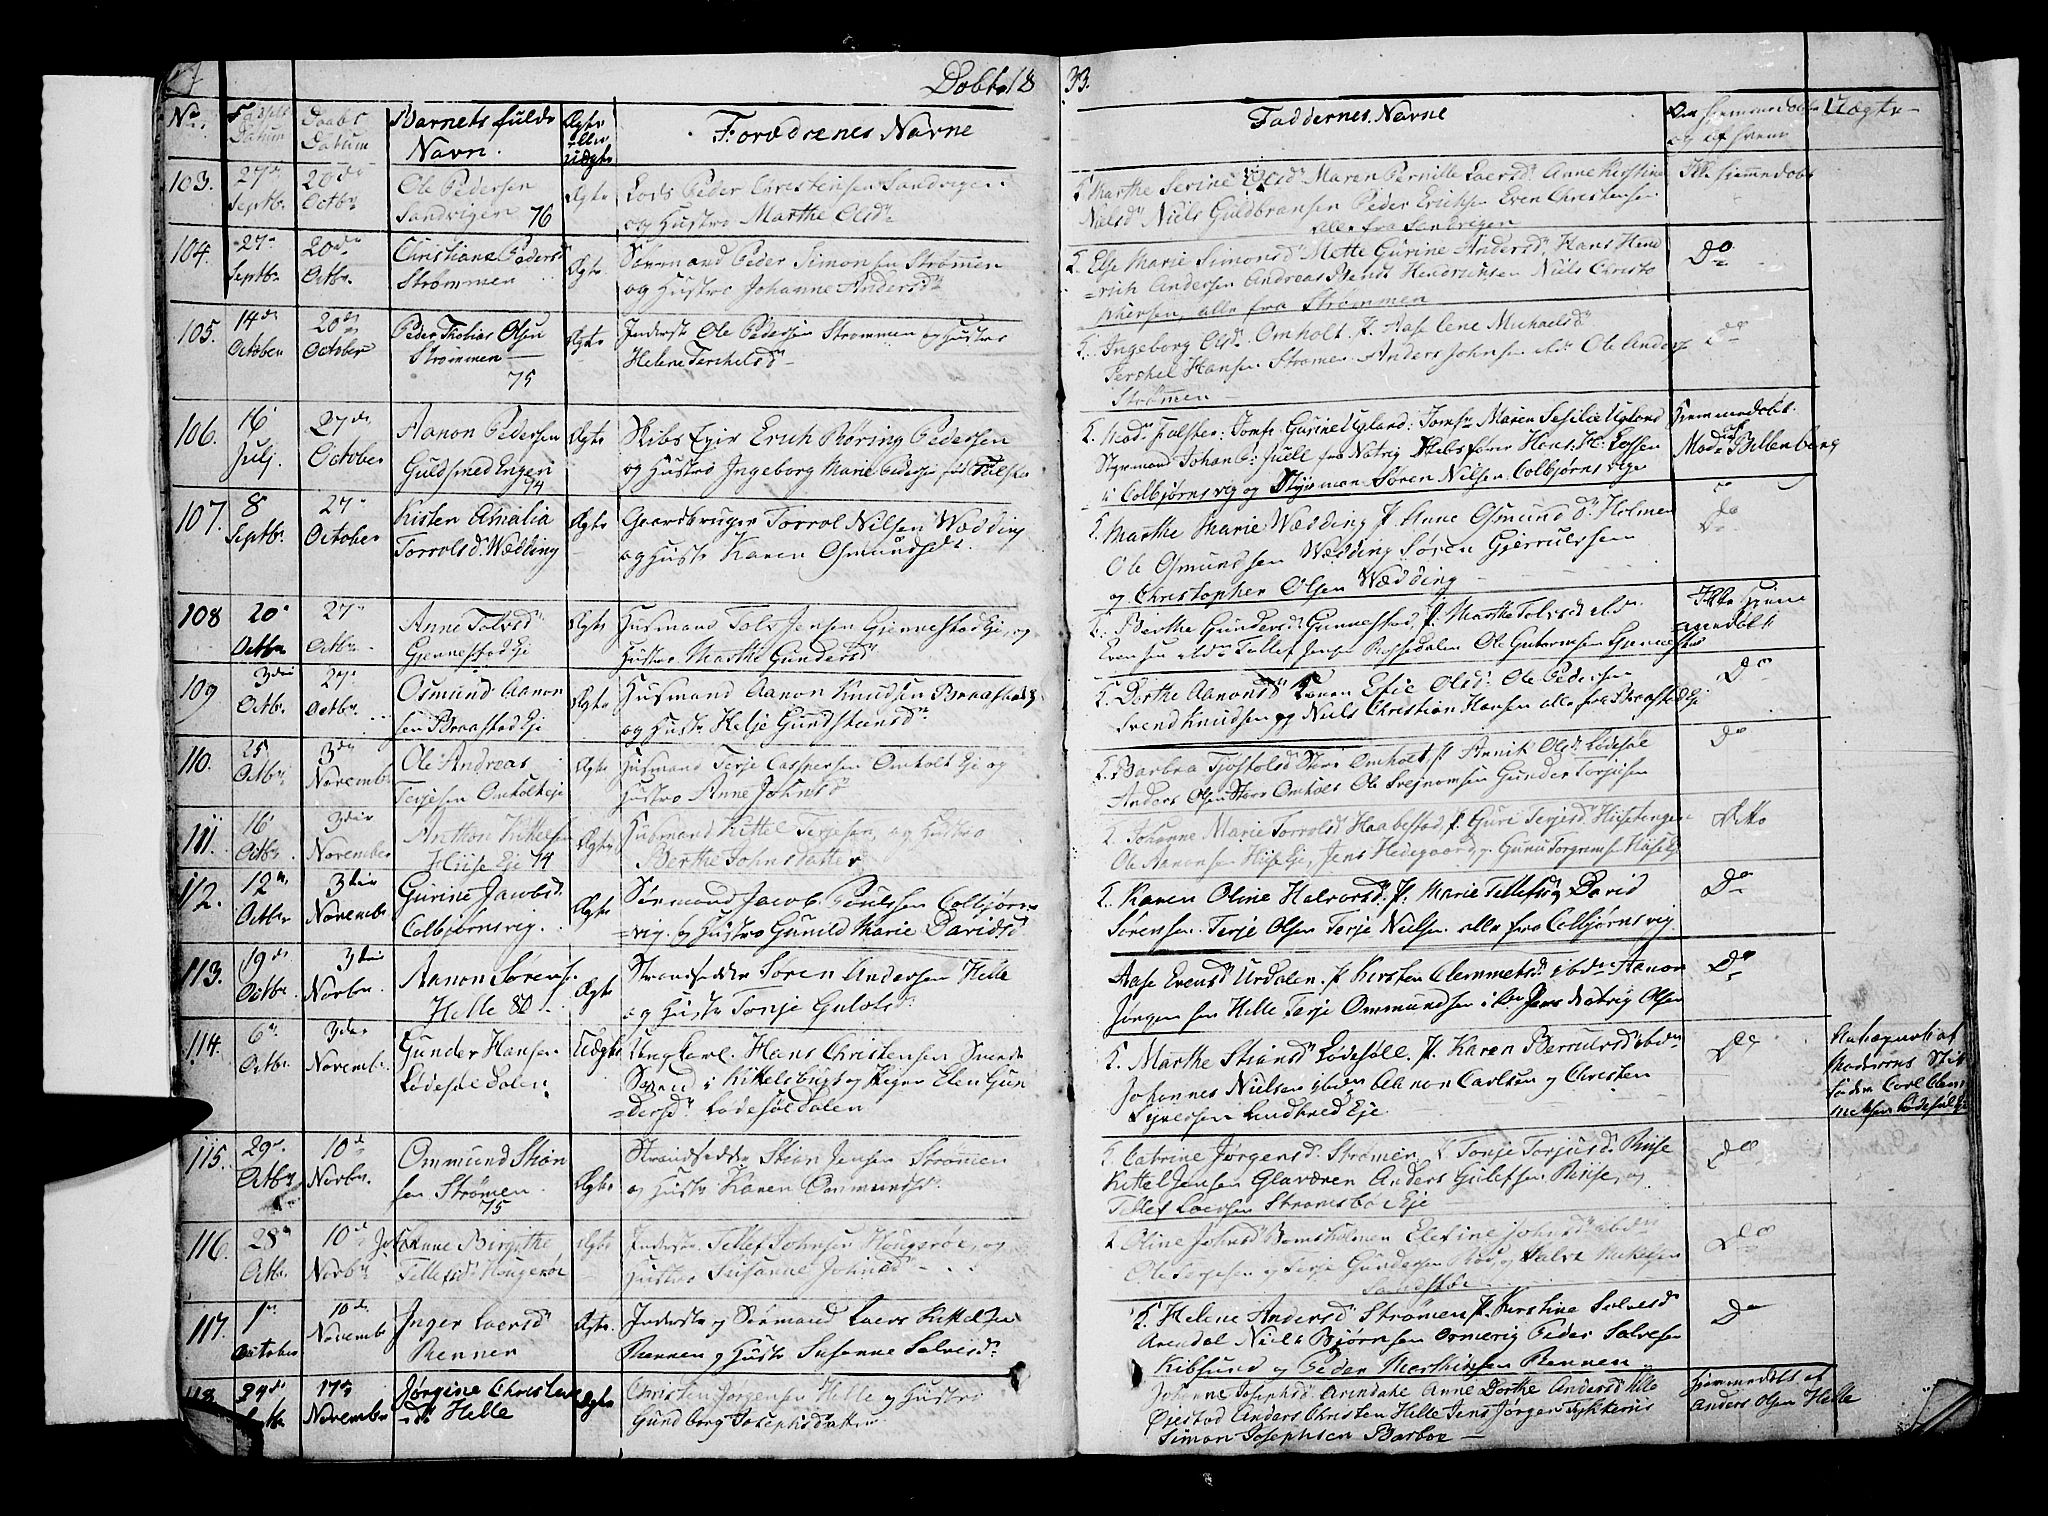 Döbte 18 33.
No. Fødsels Datum Daabs Datum Barnets fulde Navn. Ægte eller uægte Forædrenes Navne Faddernes Navne Uægte
103. 27de Septbr. 20de Octbr. Ole Pedersen Sandvigen 76 Ægte
Lods Peder Christensen Sandvigen
og Hustro Marthe Olsd.
K. Marthe Serine Olsd. Maren Pernille Laersd. Anne Kirstine
Nielsd. Niels Guldbransen Peder Erichsen Even Christensen
alle fra Sandvigen
Ikke hiemmedøbt
104. 27 Septbr. 20de Octbr. Christiane Pedersd. Strømmen Ægte
Sørmand Peder Simonsen Strømen
og Hustro Johanne Andersd.
K. Else Marie Simonsd. Mette Gurine Andersd. Hans Hend
rich Andersen Andreas Bendt Hendrichsen Niels Christo
phersen, alle fra Strømmen
Do
105. 14de October 20de October Peder Tobias Olsen Strømmen 75 Ægte
Inderste Ole Pedersen Strømmen og Hustro
Helene Terchelsd.
K. Ingeborg Olsd. Omholt. P. Aase Lene Michaelsd.
Terchel Hansen Strømen Anders Johnsen Ole Anders
Strømen
Do
106. 16 Julj. 27de October Aanon Pedersen Guldsmed Engen 74 Ægte
Skibs Ejer Erich Børing Pedersen
og Hustro Ingeborg Marie Pedersen fød Falster
K. Mad. Falster: Jomf. Gurine Ugland: Jomfr. Maren Sesilie Ugland
Styrmand Johan fra Natvig Skibsfører Hans H:
i Colbjørnsvig og Styrman Søren Nilsen Colbjørnsvig
Hiemmedøbt. Mad. Billenberg
107. 8 Septbr. 27 October Kisten Amalia Torrolsd. Wædding Ægte
Gaardbruger Torrol Nilsen Wædding
og Hustr. Karen Osmundsdt.
K. Marthe Marie Wædding P. Anne Osmundsd. Holmen
Ole Osmundsen Wædding Søren Gjerrulssen
og Christopher Olsen Wædding
Do
108 20 Octbr 27 Octbr. Anne Talvsd. Gjennestad Eje Ægte
Husmand Talv Jensen Gjennestad Eje, og
Hustro Marthe Gundersd.
K. Berthe Gundersd. Gjennestad, P. Marthe Talvsd.
Evensen Tallef Jensen Ole Gutormsen Gjennestad
Ikke Hiemmedøbt
109 3die Octbr. 27 Octbr. Osmund Aanonsen Braastad Eje Ægte
Husmand Aanon Knudsen Braastad Eje
og Hustr Helje Gundstensd.
K. Dorthe Aanonsd. Efie Olsd. Ole Pedersen
Svend Knudsen og Niels Christian Hansen alle fra Braastad Eje
Do
110. 25 Octbr. 3die November Ole Andreas Terjesen Omholt eje Ægte
Husmand Terje Caspersen Omholt Eje og
Hustro Anne Johnsd.
K. Barbra Tjøstolsd. Omholt P. Annik Olsd. Lødesøl
Anders Olsen Omholt Ole Gunder Torjusen
Do
111. 16 Octbr. 3die November Anthon Kittelsen Hiise Eje 74 Ægte
Husmand Kittel Terjesen, og Hustro
Berthe Johnsdatter
K. Johanne Marie Torrolsd. Haabestad, P. Guri Terjesd. Hiisebergen
Ole Aanonsen Hiise Eje, Jens Hedegaard, Torgrimsen Hiise Eje
Ditto
112. 12te Octbr 3die November Gurine Jacobsd. Colbjørnsvig. Ægte
Sørmand Jacob Poulssen Colbjørns
vig. og Hustro Gunild Marie Davidsd
K. Karen Oline Halvorsd. P. Marie Tellefsd. David
Sørensen. Terje Olsen Terje Nielsen alle fra Colbjørnsvig
Do
113. 19de Octbr. 3die Novbr. Aanon Sørensen Helle 80 Ægte
Strandsedder Søren Andersen Helle
og Hustr Tonje Gulovsd.
Aase Evensd. Urdalen. P. Kirsten Clemmetsd. ibden Aanon
Jørgensen Helle Terje Ommundsen Jens Natvig Olsen
Do
114. 6te Octbr. 3die November. Gunder Hansen Lødesøl dalen Uægte
Ung Carl. Hans Christensen
Svend i Kittelsbugt og Pigen Elen Gun
dersd. Lødesøl dalen
K. Marthe Stiansd. Lødesøll. P. Karen Berrulsd. ibden
Johannes Nielsen ibden Aanon Carlsen og Christen
Sjversen Lindtved Eje.
Do
Moderens Stif
fader Carl Clem
metsen Lødesøl
115. 29de Octbr 10de Novbr. Ommund Stiansen Strømen 75 Ægte
Strandsedder Stian Jensen Strømen
og Hustr Karen Ommundsd.
K. Catrine Jørgensd. Strømen. Tonje Torjusd. Riise
Kittel Jensen Glaværen Anders Gulefsen Riise, og
Tellef Laersen Strømsbo Eje
Do
116. 28de Octbr. 10de Novbr. Johanne Birgithe Tellefsd. Hougerøe Ægte
Inderste Tellef Johnsen Hougerøe, og
Hustroe Susanne Johnsd.
K. Oline Johnsd. Bomsholmen Elefine Johnsd. ibden
Ole Terjesen og Terje Gundersen og Salve Michelsen
Do
117. 1ste October 10de November Inger Laersd. Rennen Ægte.
Inderste og Sørmand Laers Kittelsen
Rennen og Hustr Susanne Salvesd.
K. Helene Andersd. Strømen P. Kirstine Salvesd
Arendal Niels Bjørnsen Peder Salvesen
Kibsund og Peder Mathiesen Rennen
Do
118 29de 17de November Jørgine Christensd. Helle Ægte
Christen Jørgensen Helle og Hustro
Gundborg Josephsdatter
Johanne Josephsd. Arendal Anne Dorthe Andersd. Helle
Øiestad Anders Christen Helle Jens Jørgen
Simon Josephsen Barboe
Hiemmedøbt af
Anders Olsen Helle